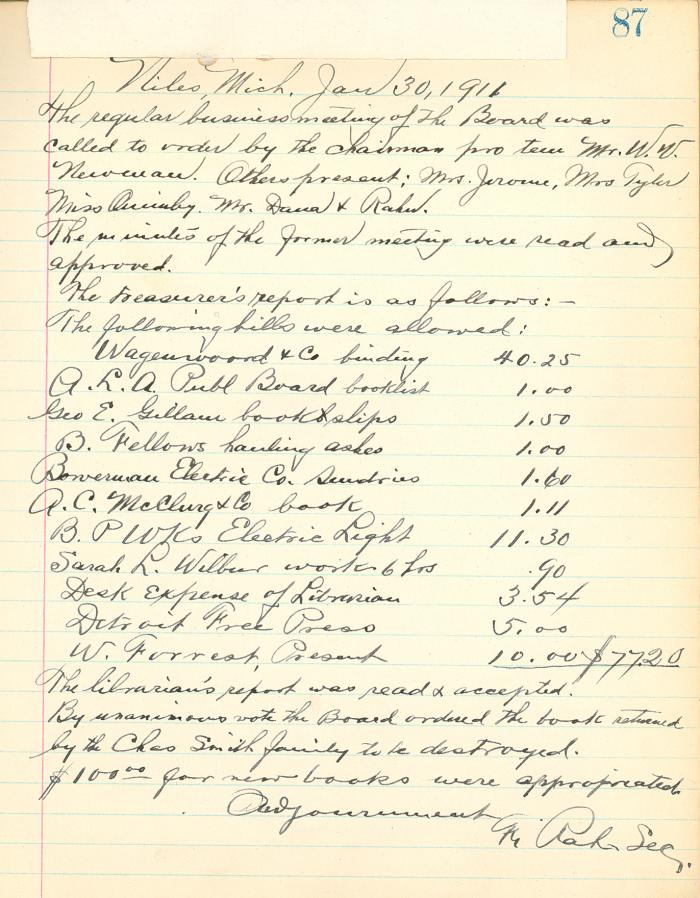 87
Niles, Mich. Jan 30, 1911
The regular business meeting of the Board was
called to order by the chairman pro tem Mr. W. W.
Newman. Others present; Mrs. Jerome, Mrs Tyler
Miss Quimby. Mr. Dana & Rahn.
The minutes of the former meeting were read and
approved.
The treasurer's report is as follows:-
The following bills were allowed:
Wagenwoord & Co binding 40.25
A. L. A. Publ Board booklist 1.00
Geo E. Gillam book & slips 1.50
B. Fellows hauling ashes 1.00
Bowerman Electric Co. Sundries 1.60
A. C. McClurg & Co book 1.11
B. P Wks Electric Light 11.30
Sarah L. Wilbur work 6 hrs .90
Desk Expense of Librarian 3.54
Detroit Free Press 5.00
W. Forrest, Present 10.00 $77.20
The librarian's report was read & accepted.
By unanimous vote the Board ordered the book returned
by the Chas Smith family to be destroyed.
$100.00 for new books were appropriated.
Adjournment
Rahn Sec.